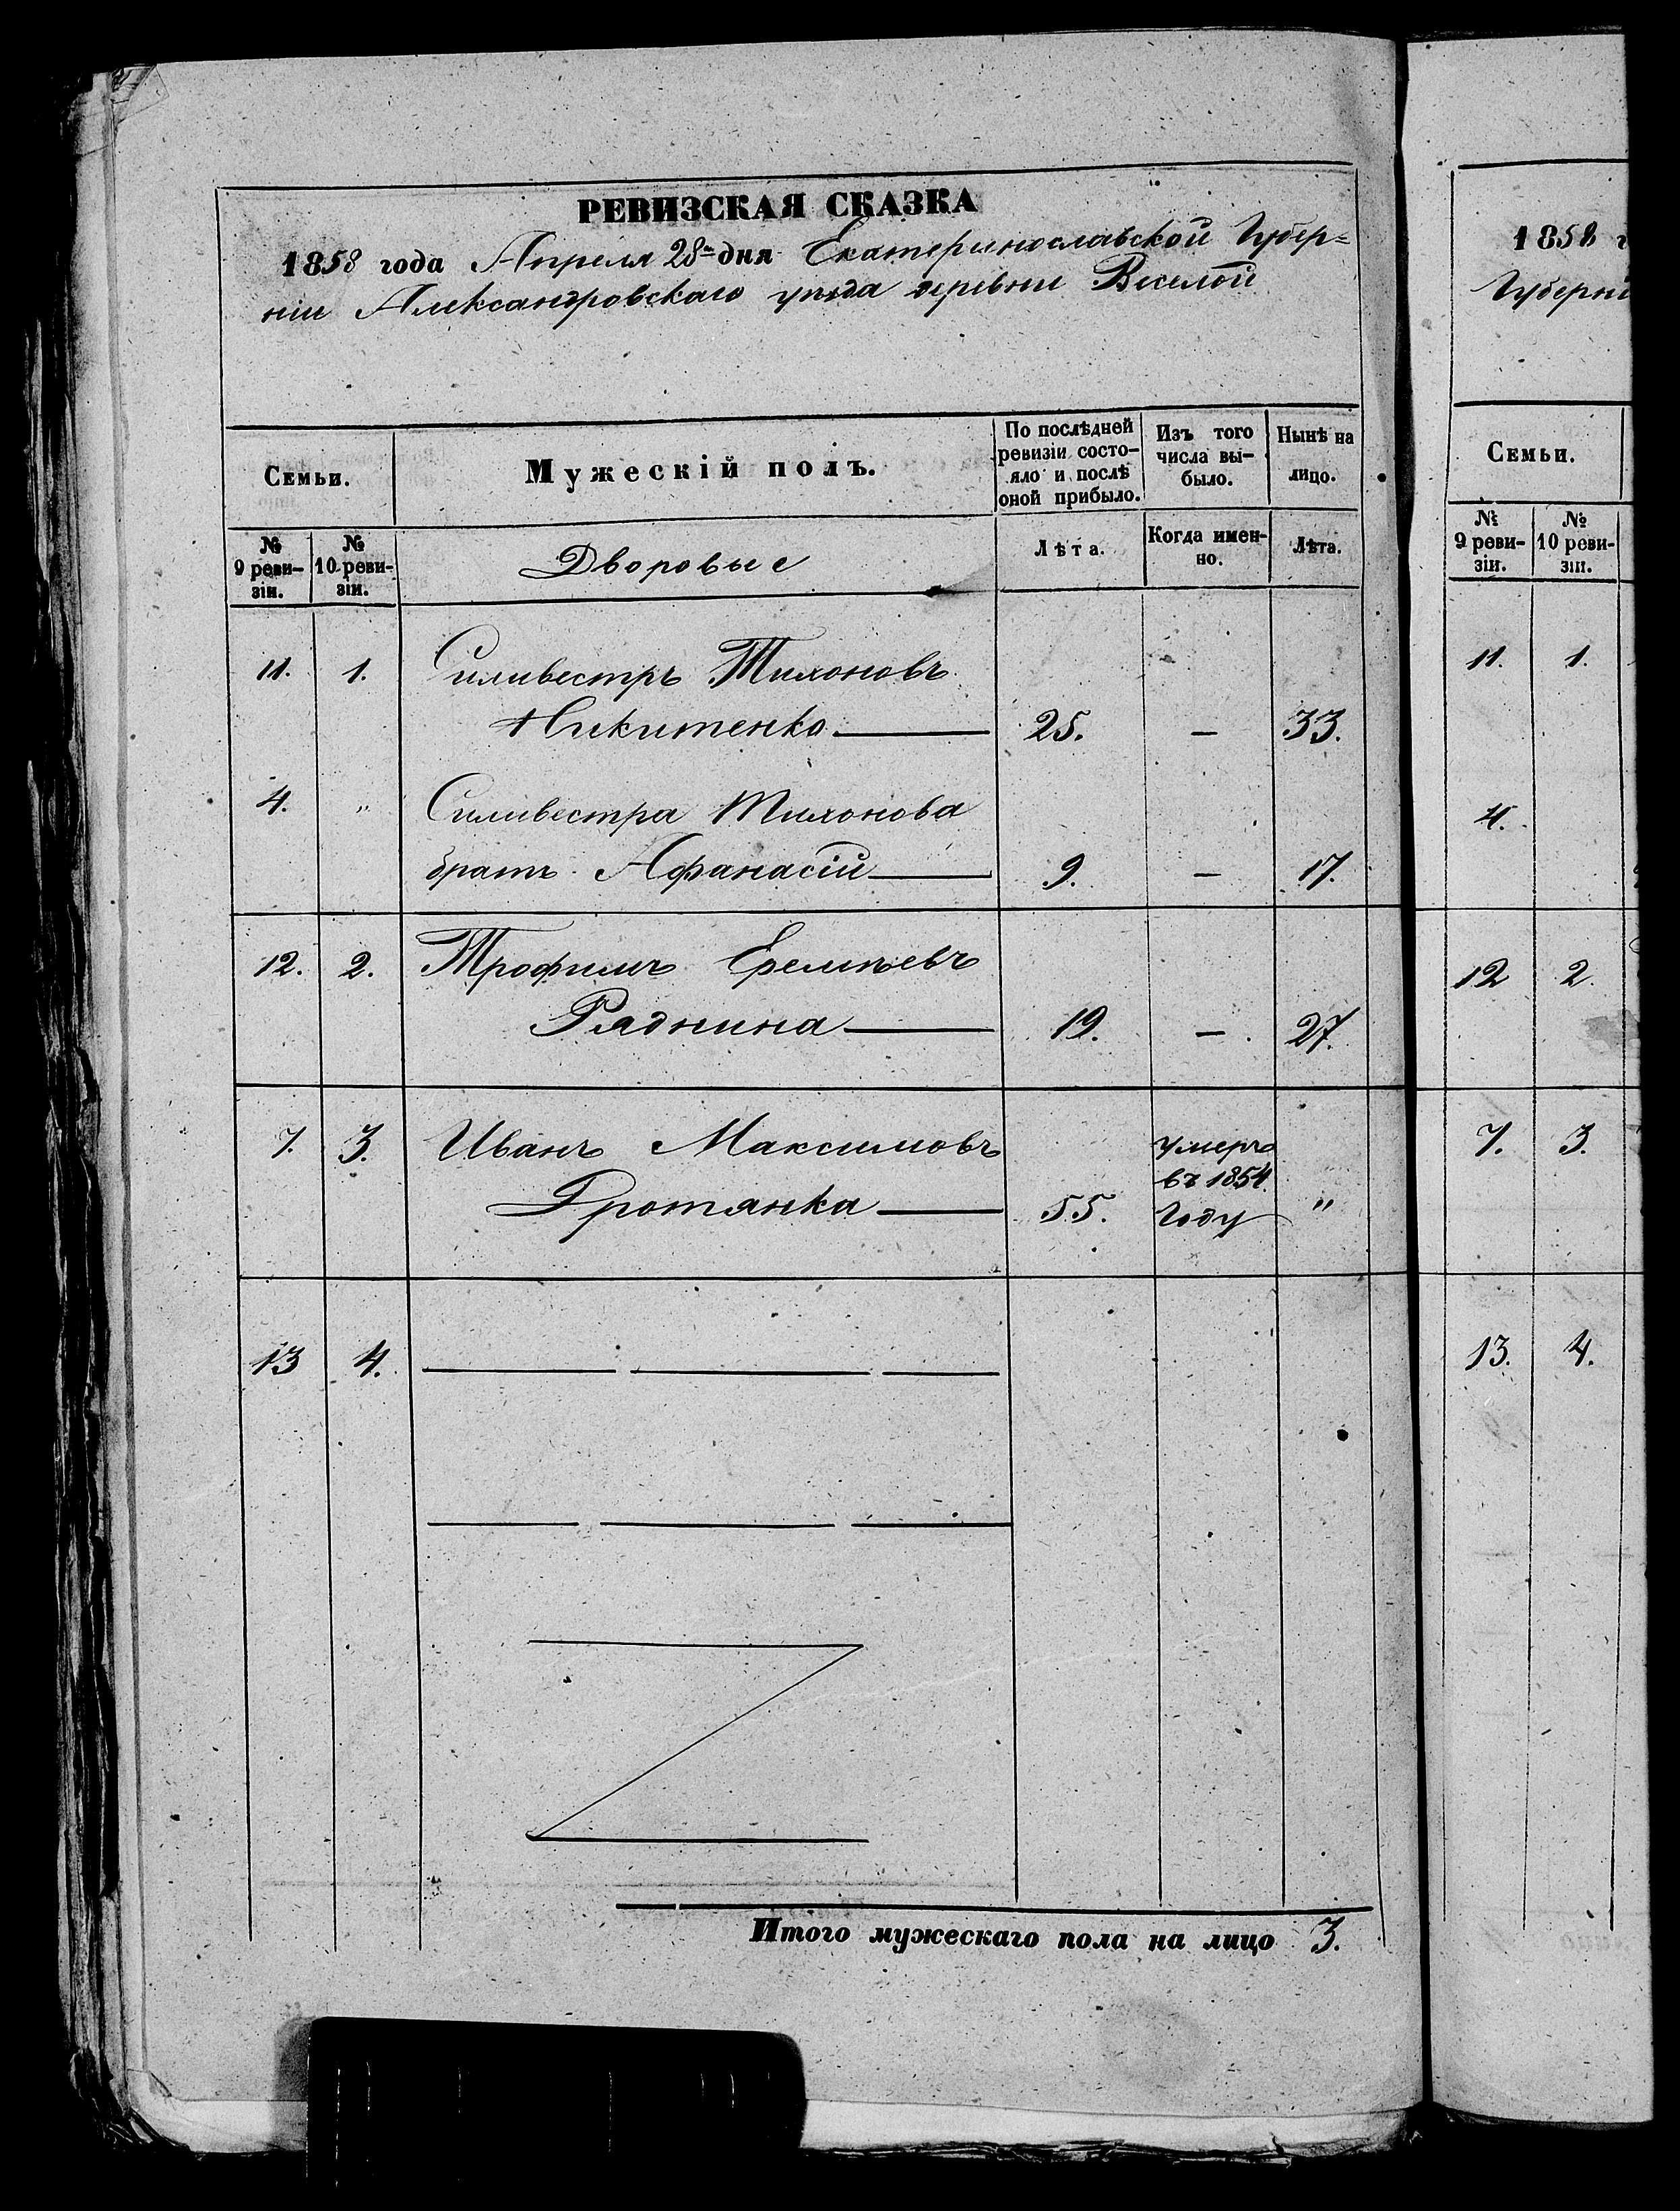 РЕВИЗСКАЯ СКАЗКА
1858 года Апреля 28 дня Екатеринославской Губер=
ніи Александровскаго уѣзда деревни Веселой
Семьи.
Мужескій полъ.
По послѣдней
ревизіи состо-
яло и послѣ
оной прибыло.
Изъ того
числа вы-
было.
Нынѣ на
лицо.
№
9 реви-
зіи.
№
10 реви-
зіи.
Дворовые
Лѣта.
Когда имен-
но.
Лѣта.
11. 1. Силивестръ Тихоновъ
Никитенко 25. — 33.
4. " Силивестра Тихонова
братъ Афанасій 9. — 17.
12. 2. Трофимъ Еремѣевъ
Ряднина 19. — 27.
7. 3. Иванъ Максимовъ умеръ
въ 1854.
Гротянка 55. году "
13 4.
Итого мужескаго пола на лицо 3.
1858 г
Губерні
Семьи.
№
9 реви-
зіи.
№
10 реви-
зіи.
11. 1.
4.
12 2.
7. 3.
13. 4.